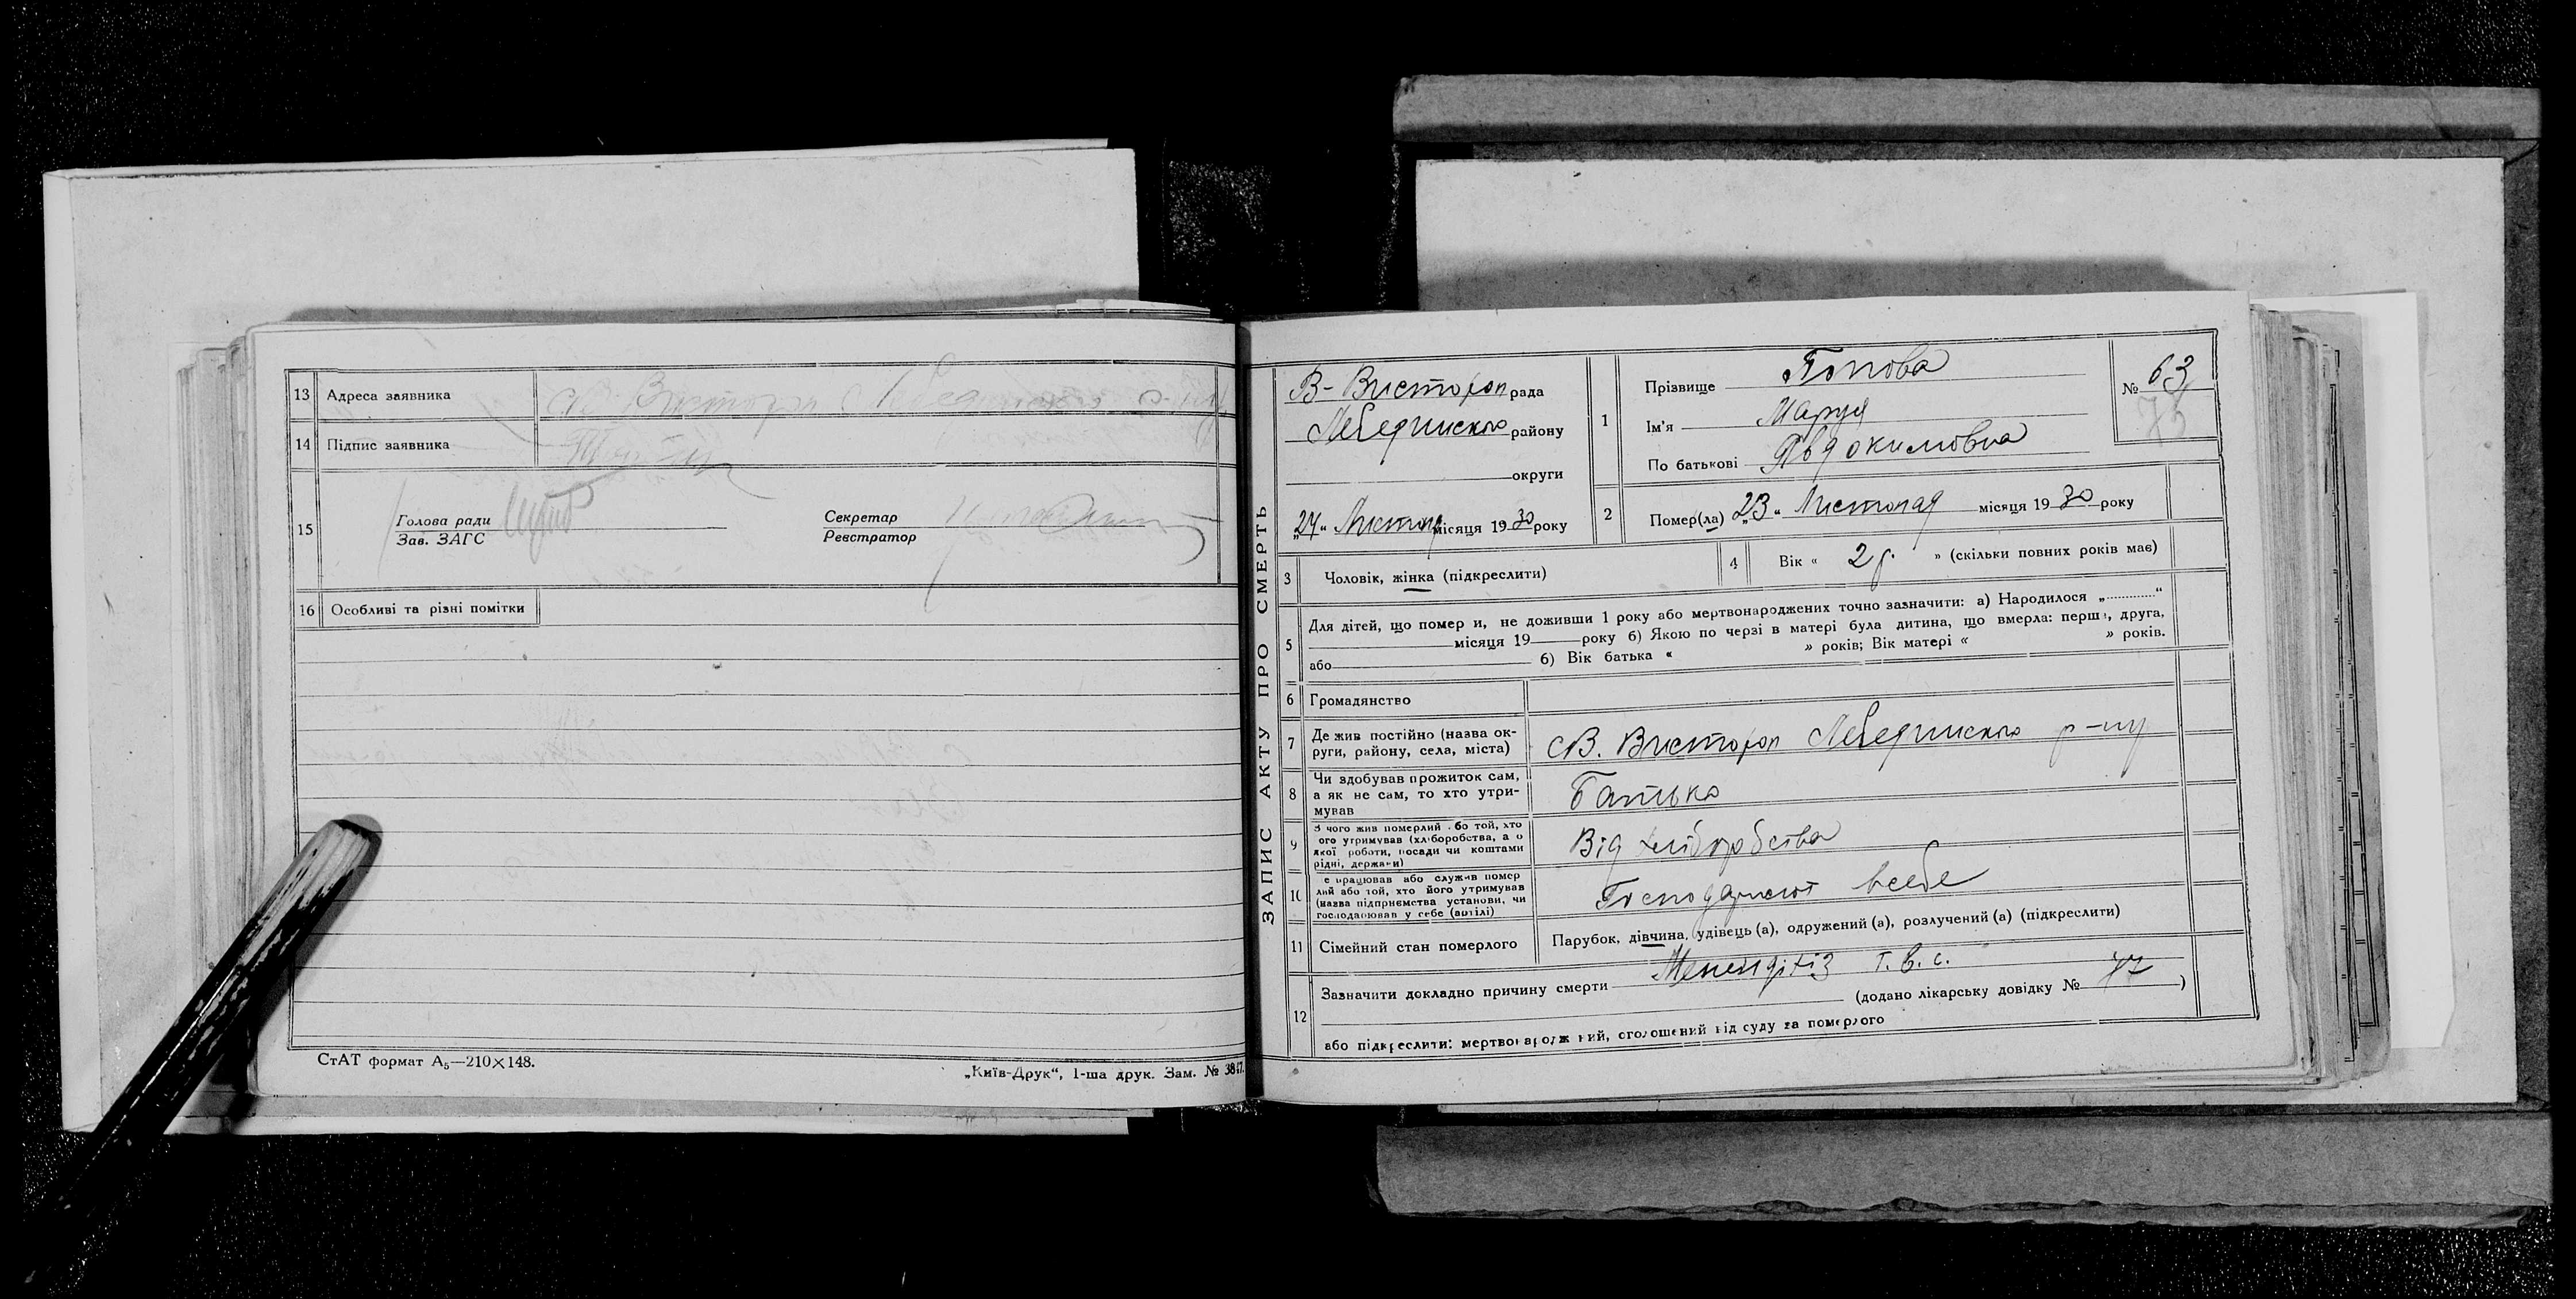 13 Адреса заявника с В. Вистороп Лебединського р-ну
14 Підпис заявника
15 Голова ради
Зав. ЗАГС
Секретар
Реєстратор
16 Особливі та різні помітки
СтАТ формат А₅—210×148.
„Київ-Друк“, 1-ша друк. Зам. № 3817.
ЗАПИС АКТУ ПРО СМЕРТЬ
В-Вистороп рада
Лебединсько району
округи
„24“ Листоп місяця 1930 року
1 Прізвище Попова
Ім'я Маруся
По батькові Явдокимовна
№ 63
73
2 Помер(ла) „23“ Листопад місяця 1930 року
3 Чоловік, жінка (підкреслити)
4 Вік « 2 р. » (скільки повних років має)
5 Для дітей, що помер и, не доживши 1 року або мертвонароджених точно зазначити: а) Народилося „............“
місяця 19 року б) Якою по черзі в матері була дитина, що вмерла: перш , друга,
або 6) Вік батька « » років; Вік матері « » років.
6 Громадянство
7 Де жив постійно (назва ок-
руги, району, села, міста) с В. Вистороп Лебединсько р-ну
8 Чи здобував прожиток сам,
а як не сам, то хто утри-
мував Батько
9 З чого жив померлий або той, хто
ого утримував (хліборобства, а о
якої роботи, посади чи коштами
рідні, держави) Від хліборобства
10 е працював або служив помер
лий або той, хто його утримував
(назва підприємства установи, чи
господарював у себе (артілі) Господарюют всебе
11 Сімейний стан померлого Парубок, дівчина, удівець (а), одружений (а), розлучений (а) (підкреслити)
12 Зазначити докладно причину смерти Менендітіз т. в. с.
(додано лікарську довідку № 77 )
або підкреслити: мертвонароджений, оголошений від суду за померлого